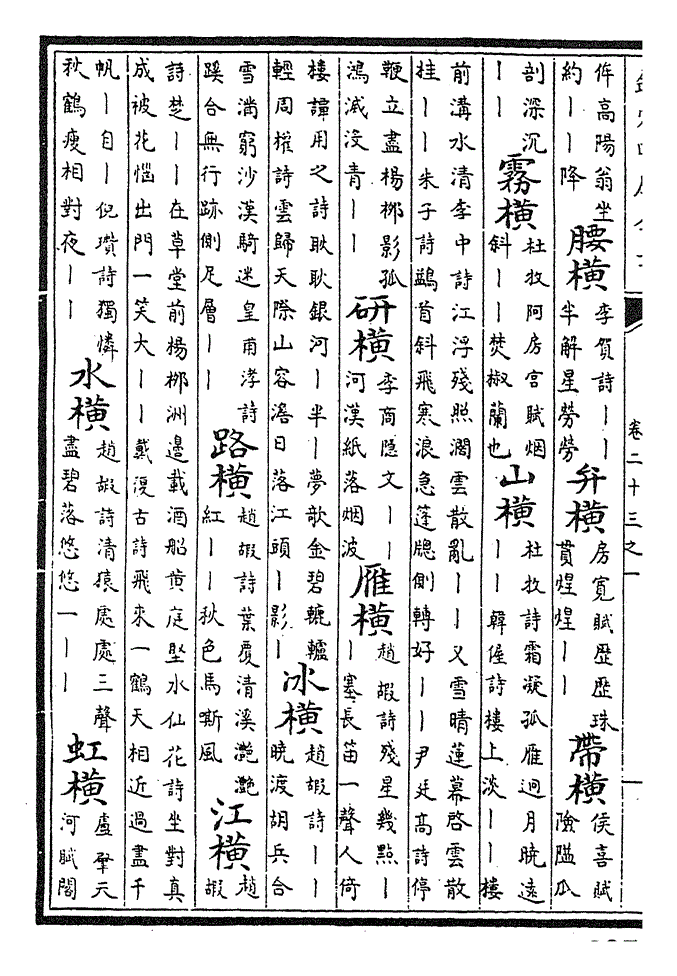 卷二十三之一
侔高陽翁坐
約丨丨降
腰橫
李賀詩丨丨
半解星勞勞
弁橫
房寛賦歷歷珠
貫煌煌丨丨
帶橫
侯喜賦
險隘瓜
剖深沉
丨丨
霧橫
杜牧阿房宫賦烟
斜丨丨焚椒蘭也
山橫
杜牧詩霜凝孤雁迥月曉遠
丨丨韓偓詩樓上淡丨丨樓
前溝水清李中詩江浮殘照濶雲散亂丨丨又雪晴蓮幕啓雲散
桂丨丨朱子詩鷁首斜飛寒浪急蓬牕側轉好丨丨尹廷高詩停
鞭立盡楊桞影孤
鴻滅没青丨丨
研橫
李商隱文丨丨
河漢紙落烟波
雁橫
趙嘏詩殘星幾點丨
丨塞長笛一聲人倚
樓譚用之詩耿耿銀河丨半丨夢歌金碧轆轤
輕周權詩雲歸天際山容澹日落江頭丨影丨
冰橫
趙嘏詩丨丨
曉渡胡兵合
雪滿窮沙漢騎迷皇甫涍詩
蹊合無行跡側足層丨丨
路橫
趙嘏詩葉覆清溪灧灧
紅丨丨秋色馬嘶風
江橫
趙
嘏
詩楚丨丨在草堂前楊桞洲邉載酒船黄庭堅水仙花詩坐對真
成被花惱出門一笑大丨丨戴復古詩飛來一鶴天相近過盡千
帆丨自丨倪瓚詩獨憐
秋鶴瘦相對夜丨丨
水橫
趙嘏詩清猿處處三聲
盡碧落悠悠一丨丨
虹橫
盧肇天
河賦閣